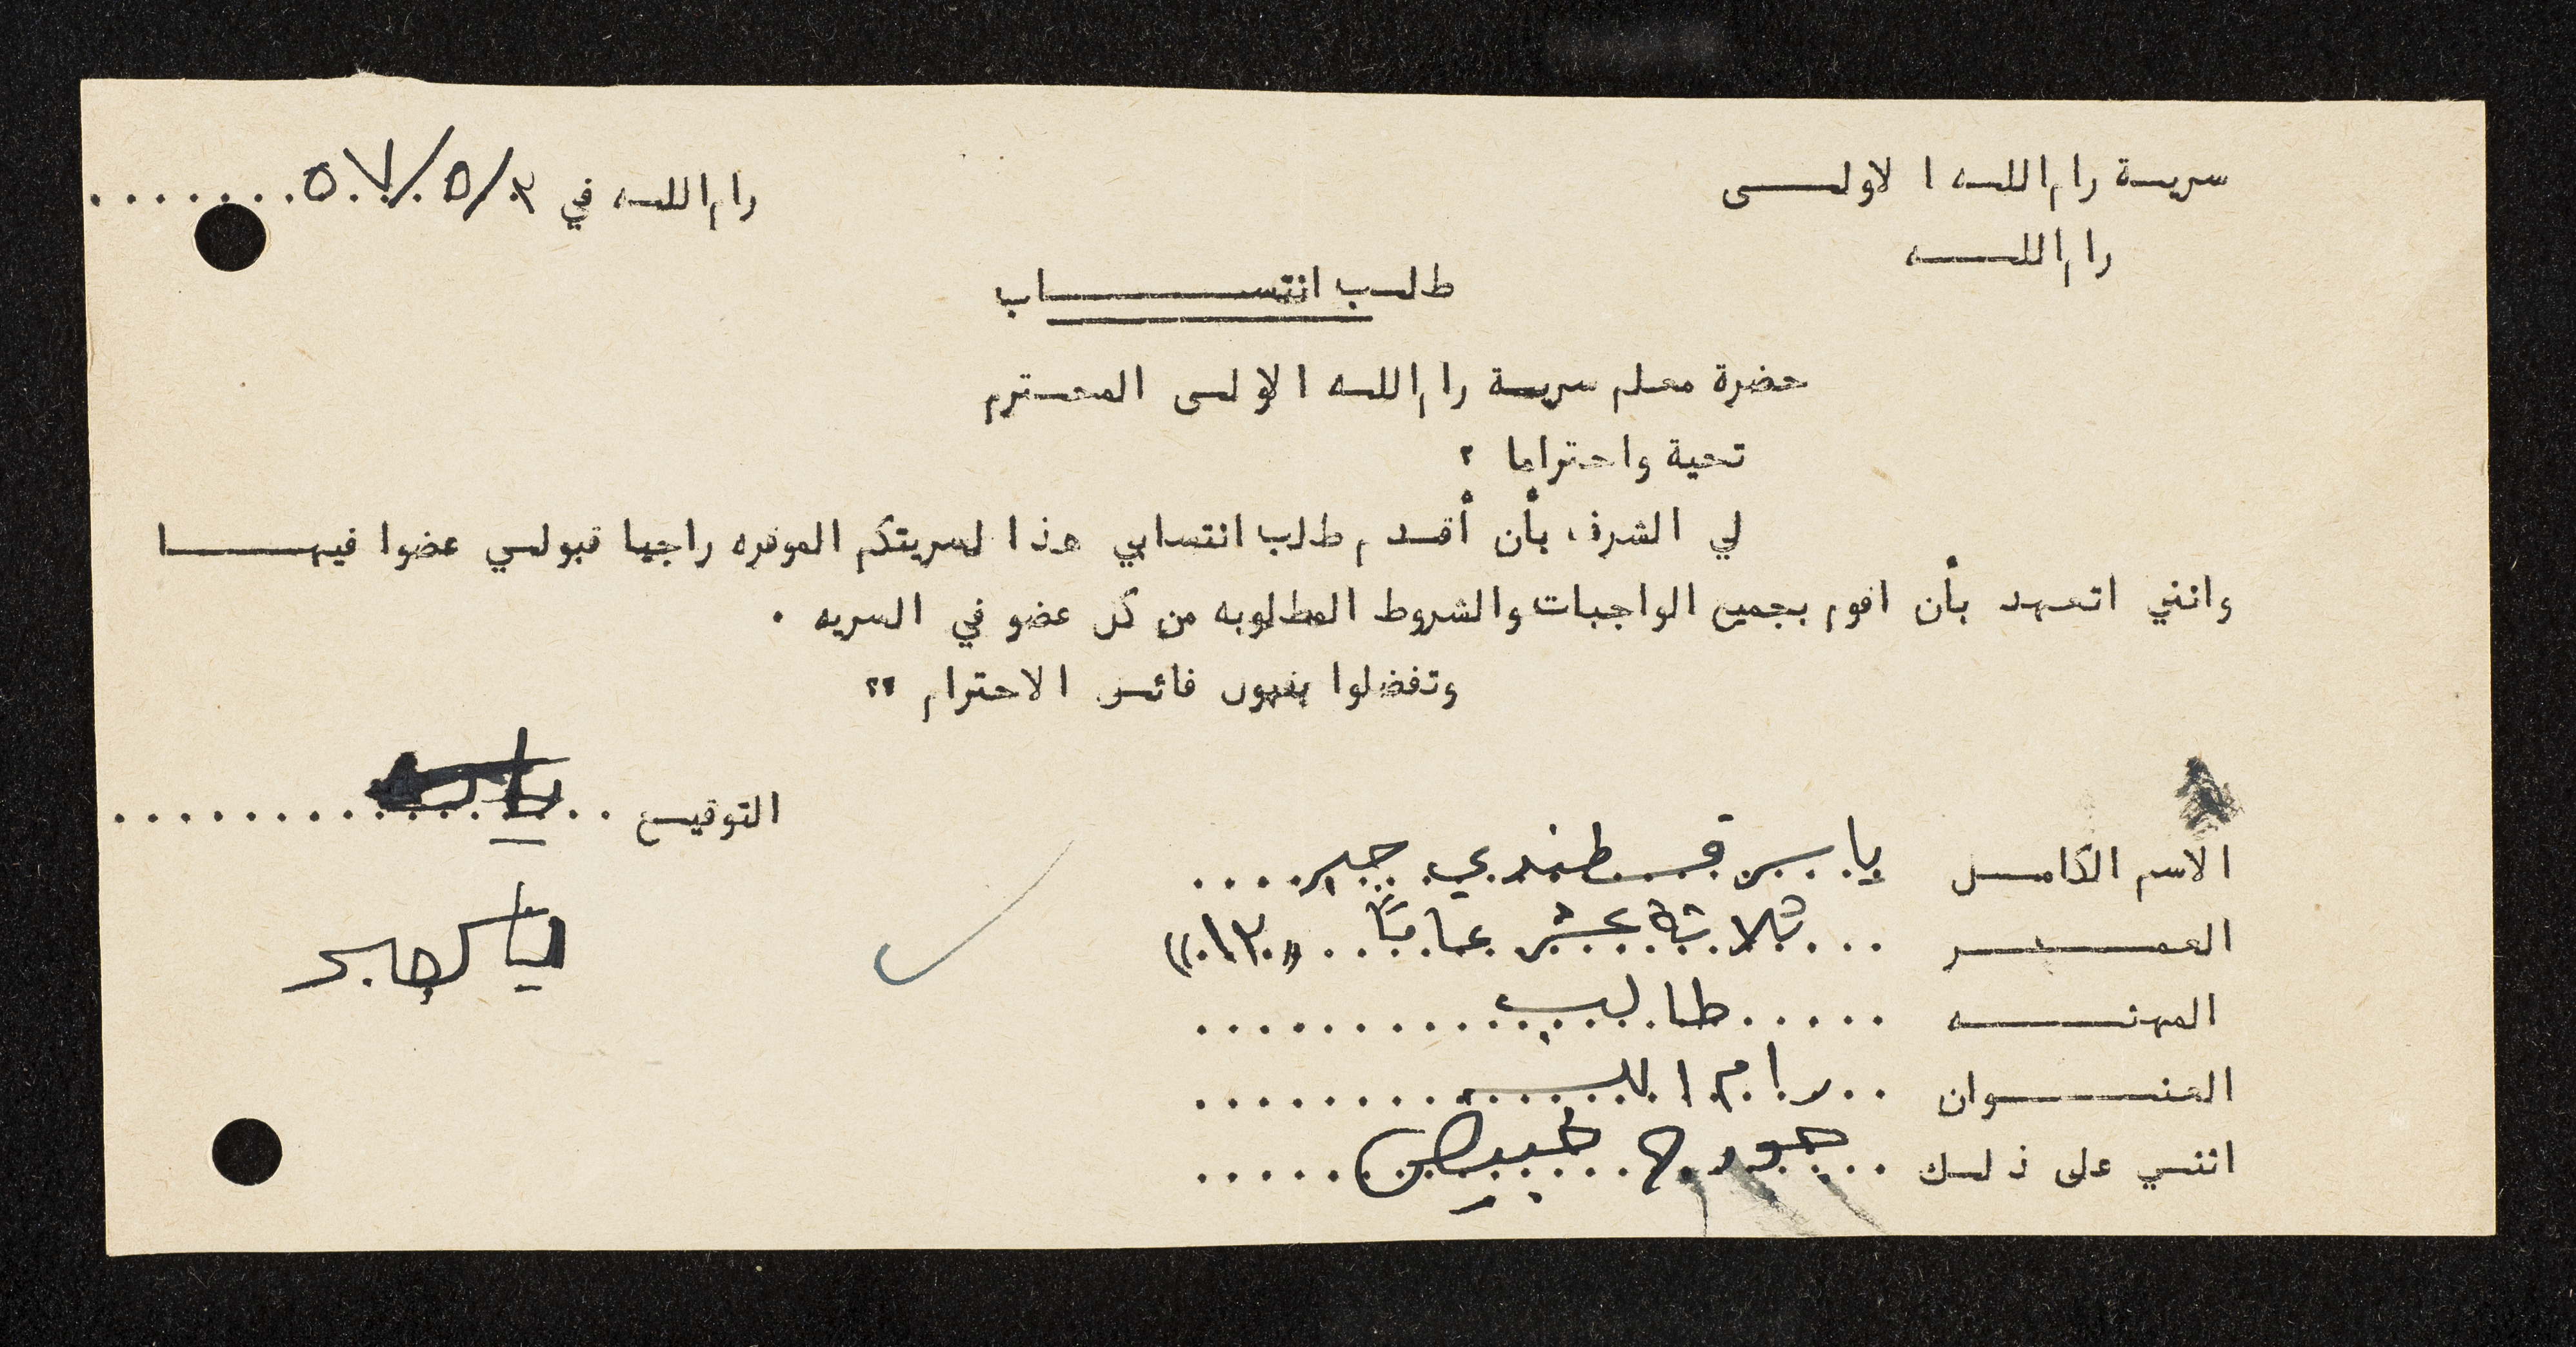 سرية رام الله الاولى
رام الله في ٣/٥/٥٧
رام الله
طلب انتساب
حضرة معلم سرية رام الله الاولى المحترم
تحية واحتراما ،
لي الشرف ، بأن أقدم طلب انتسابي هذا لسريتكم الموقره راجيا قبولي عضوا فيها
وانني اتعهد بأن اقوم بجميع الواجبات والشروط المطلوبه من كل عضو في السريه .
وتفضلوا بقبول فائق الاحترام ،،
التوقيع
الاسم الكامل ياسر قسطندي جبر
ياسر جبر
العمر ثلاثة عشر عاماً «١٣»
المهنه طالب
العنوان رام الله
اثني على ذلك جورج